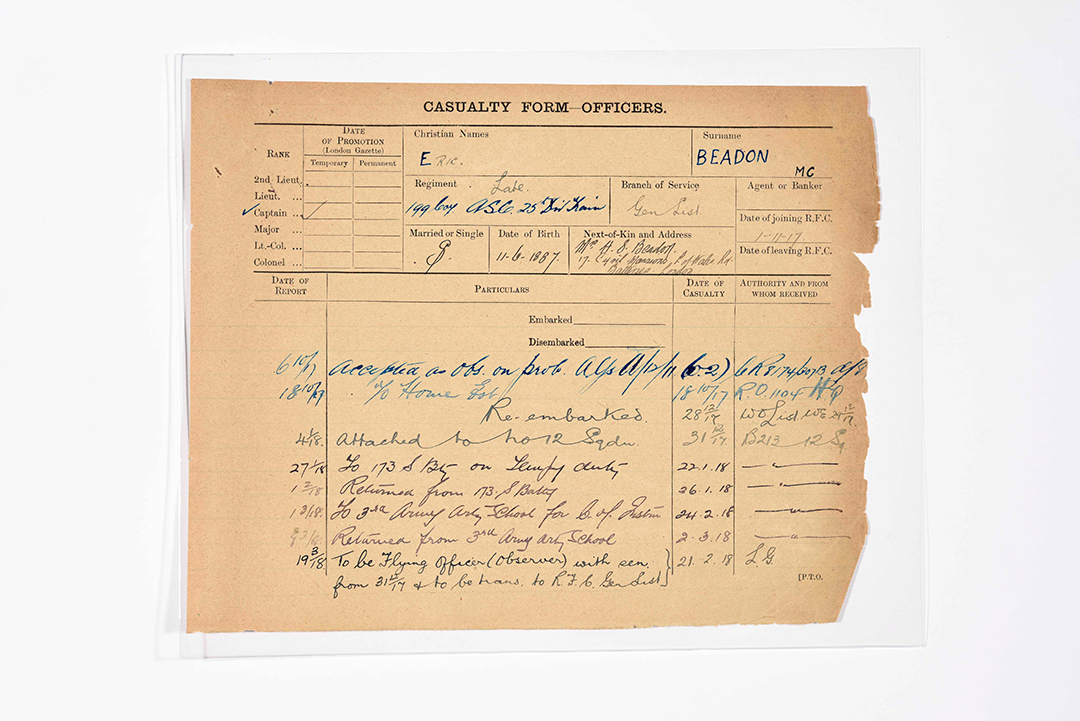 CASUALTY FORM—OFFICERS.
RANK
DATE OF PROMOTION (London Gazette)
Temporary Permanent
2nd Lieut.
Lieut. ...
✓ Captain ... ✓
Major ...
Lt.-Col. ...
Colonel ...
Christian Names
ERIC.
Surname
BEADON
MC
Regiment
Late.
199 Coy. ASC. 25th Div Train
Branch of Service
Gen List.
Agent or Banker
Date of joining R.F.C.
1-11-17
Date of leaving R.F.C.
Married or Single
S.
Date of Birth
11-6-1887
Next-of-Kin and Address
H. S. Beadon.
17. Mansions, P. of Wales Rd.
Battersea London
DATE OF REPORT
PARTICULARS
DATE OF CASUALTY
AUTHORITY AND FROM WHOM RECEIVED
Embarked
Disembarked
6 10/17 Accepted as Obs. on prob.
18 10/17 Home Est. 18 10/17 R.O. 1104 HQ
Re-embarked. 28 12/17 WO List
4 1/18. Attached to No 12 Sqdn. 31 12/17. B213 12 Sq
27 1/18 To 173 S Bty on Tempy duty 22.1.18 — " —
1 2/18 Returned from 173. S Batty 26.1.18 — " —
1 3/18. To 3rd Army Arty School for C. of Instn 24.2.18 — " —
Returned from 3rd Army Arty School 2.3.18 — " —
19 3/18 To be Flying Officer (Observer) with sen. 21.2.18 L.G.
from 31 12/17 & to be trans. to R.F.C. Gen List
[P.T.O.